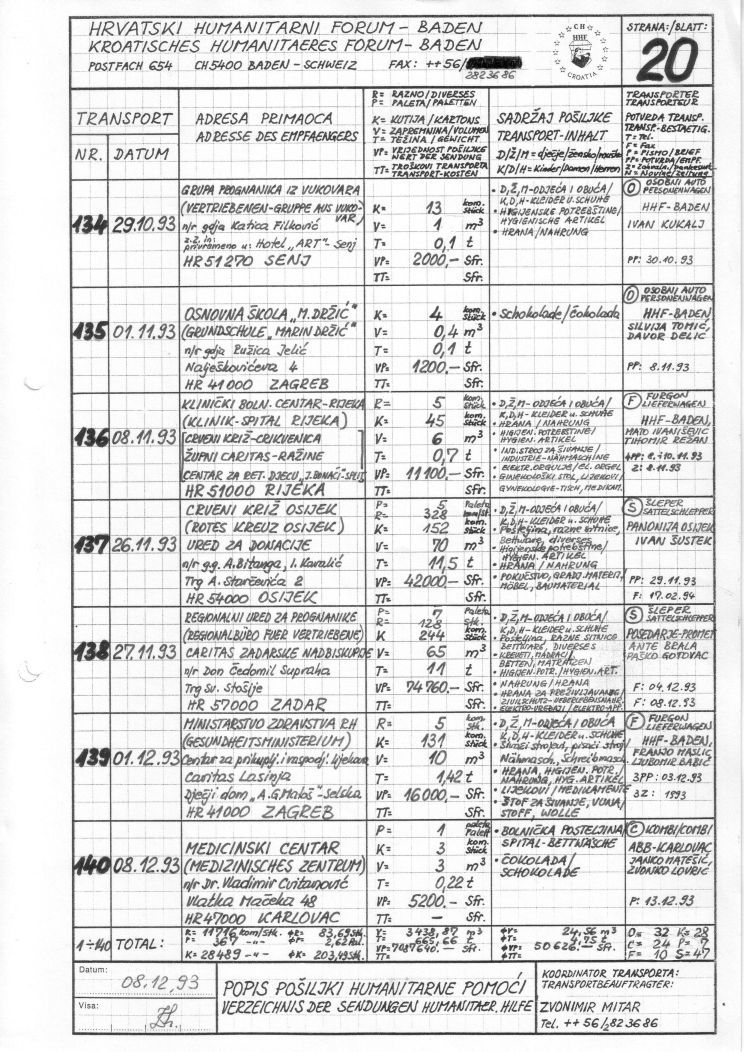 HRVATSKI HUMANITARNI FORUM – BADEN
KROATISCHES HUMANITAERES FORUM – BADEN
POSTFACH 654 CH 5400 BADEN – SCHWEIZ FAX: ++ 56/
2823686
CH
HHF
CROATIA
STRANA:/BLATT:
20
TRANSPORT
NR. DATUM
ADRESA PRIMAOCA
ADRESSE DES EMPFAENGERS
R= RAZNO/DIVERSES
P= PALETA/PALETTEN
K= KUTIJA/KARTONS
V= ZAPREMNINA/VOLUMEN
T= TEŽINA/GEWICHT
VP= VRIJEDNOST POŠILJKE
WERT DER SENDUNG
TT= TROŠKOVI TRANSPORTA
TRANSPORT-KOSTEN
SADRŽAJ POŠILJKE
TRANSPORT-INHALT
D/Ž/M = dječje/ženska/muška
K/D/H = Kinder/Damen/Herren
TRANSPORTER
TRANSPORTEUR
POTVRDA TRANSP.
TRANSP.-BESTAETIG.
T = Tel.
F = Fax
P = PISMO/BRIEF
PP = POTVRDA/EMPF.
N = Novine/Zeitung
134 29.10.93
GRUPA PROGNANIKA IZ VUKOVARA
(VERTRIEBENEN-GRUPPE AUS VUKOVAR)
n/r gdja Katica Filković
z.Z. in:
privremeno u: Hotel „ART“ – Senj
HR 51270 SENJ
K= 13 kom. Stück
V= 1 m³
T= 0,1 t
VP= 2000,– Sfr.
TT= Sfr.
• D,Ž,M-ODJEĆA I OBUĆA/
K,D,H-KLEIDER U. SCHUHE
• HIGIJENSKE POTREBŠTINE/
HYGIENISCHE ARTIKEL
• HRANA/NAHRUNG
O OSOBNI AUTO
PERSONENWAGEN
HHF-BADEN
IVAN KUKALJ
PP: 30.10.93
135 01.11.93
OSNOVNA ŠKOLA „M. DRŽIĆ“
(GRUNDSCHULE „MARIN DRŽIĆ“
n/r gdja Ružica Jelić
Nalješkovićeva 4
HR 41000 ZAGREB
K= 4 kom. Stück
V= 0,4 m³
T= 0,1 t
VP= 1200.– Sfr.
TT= Sfr.
• Schokolade/čokolada
O OSOBNI AUTO
PERSONENWAGEN
HHF-BADEN
SILVIJA TOMIĆ,
DAVOR DELIC
PP: 8.11.93
136 08.11.93
KLINIČKI BOLN. CENTAR-RIJEKA
(KLINIK-SPITAL RIJEKA)
CRVENI KRIŽ-CRIKVENICA
ŽUPNI CARITAS-RAŽINE
CENTAR ZA RET. DJECU „J. BONAČI“-SPLIT
HR 51000 RIJEKA
R= 5 kom. Stück
K= 45 kom. Stück
V= 6 m³
T= 0,7 t
VP= 11100.– Sfr.
TT= Sfr.
• D,Ž,M-ODJEĆA I OBUĆA/
K,D,H-KLEIDER U. SCHUHE
• HRANA/NAHRUNG
• HIGIJEN. POTREBŠTINE/
HYGIEN. ARTIKEL
• IND. STROJ ZA ŠIVANJE/
INDUSTRIE-NÄHMASCHINE
• ELEKTR. ORGULJE/EL. ORGEL
• GINEKOLOŠKI STOL, LIJEKOVI/
GYNEKOLOGIE-TISCH, MEDIKAM.
F FURGON
LIEFERWAGEN
HHF-BADEN,
MATO IVANIŠEVIC
TIHOMIR REŽAN
4PP: 8. i 10. 11. 93
Z: 8.11.93
137 26.11.93
CRVENI KRIŽ OSIJEK
(ROTES KREUZ OSIJEK)
URED ZA DONACIJE
n/r g.g. A. Bitanga, I. Kavalić
Trg A. Starčevića 2
HR 54000 OSIJEK
P= 5 Paleta
R= 328 kom/St.
K= 152 kom. Stück
V= 70 m³
T= 11,5 t
VP= 42000.– Sfr.
TT= Sfr.
• D,Ž,M-ODJEĆA I OBUĆA/
K,D,H-KLEIDER U. SCHUHE
• Posteljina, razne sitnice,
Bettware, diverses
• Higijenske potrebštine/
HYGIEN. ARTIKEL
• HRANA/NAHRUNG
• POKUĆSTVO, GRADJ. MATERIJ./
MÖBEL, BAUMATERIAL
S ŠLEPER
SATTELSCHLEPPER
PANONIJA OSIJEK
IVAN ŠUSTEK
PP: 29.11.93
F: 17.02.94
138 27.11.93
REGIONALNI URED ZA PROGNANIKE
(REGIONALBÜRO FUER VERTRIEBENE)
CARITAS ZADARSKE NADBISKUPIJE
n/r Don Čedomil Supraha
Trg Sv. Stošije
HR 57000 ZADAR
P= 7 Paleta
R= 128 Stk.
K 244 kom. Stück
V= 65 m³
T= 11 t
VP= 74760.– Sfr.
TT= Sfr.
• D,Ž,M-ODJEĆA I OBUĆA/
K,D,H-KLEIDER U. SCHUHE
• Posteljina, RAZNE SITNICE
BETTWARE, DIVERSES
• KREVETI, MADRACI/
BETTEN, MATRATZEN
• HIGIJEN. POTR./HYGIEN. ART.
• NAHRUNG/HRANA
• HRANA ZA PREŽIVLJAVANJE/
ZIVILSCHUTZ-UEBERLEBENSNAHR.
• ELEKTRO-UREDAJI/ELEKTRO-APP.
S ŠLEPER
SATTELSCHLEPPER
POSEDARJE-PROMET
ANTE BRALA
PAŠKO GOTOVAC
F: 04.12.93
F: 08.12.93
139 01.12.93
MINISTARSTVO ZDRAVSTVA RH
(GESUNDHEITSMINISTERIUM)
Centar za prikuplj. i raspodj. lijekova
Caritas Lasinja
Dječji dom „A.G. Matoš“-Selska
HR 41000 ZAGREB
R= 5 kom. Stk.
K= 131 kom. Stück
V= 10 m³
T= 1,42 t
VP= 16000.– Sfr.
TT= Sfr.
• D,Ž,M-ODJEĆA I OBUĆA
K,D,H-KLEIDER U. SCHUHE
• Šivaći strojevi, pisaći stroj/
Nähmasch., Schreibmasch.
• HRANA, HIGIJEN. POTR./
NAHRUNG, HYG. ARTIKEL
• LIJEKOVI/MEDIKAMENTE
• ŠTOF ZA ŠIVANJE, VUNA/
STOFF, WOLLE
F FURGON
LIEFERWAGEN
HHF-BADEN,
FRANJO MASLIĆ
LJUBOMIR BABIĆ
3PP: 03.12.93
3Z: 1993
140 08.12.93
MEDICINSKI CENTAR
(MEDIZINISCHES ZENTRUM)
n/r Dr. Vladimir Cvitanović
Vlatka Mačeka 48
HR 47000 KARLOVAC
P= 1 paleta Palett
K= 3 kom. Stück
V= 3 m³
T= 0,22 t
VP= 5200.– Sfr.
TT= – Sfr.
• BOLNIČKA POSTELJINA/
SPITAL-BETTWÄSCHE
• ČOKOLADA/
SCHOKOLADE
C KOMBI/KOMBI
ABB-KARLOVAC
JANKO MATEŠIĆ,
ZVONKO LOVRIĆ
P: 13.12.93
1÷140 TOTAL:
R= 11716 kom/Stk. ΦR= 83,69 Stk.
P= 367 –„– ΦP= 2,62 Pal.
K= 28489 –„– ΦK= 203,49 Stk.
V= 3438,87 m³
T= 665,66 t
VP= 7087640.– Sfr.
TT=
ΦV= 24,56 m³
ΦT= 4,75 t
ΦVP= 50626.– Sfr.
ΦTT=
O= 32 K= 28
C= 24 P= 7
F= 10 S= 47
Datum:
08.12.93
Visa:
POPIS POŠILJKI HUMANITARNE POMOĆI
VERZEICHNIS DER SENDUNGEN HUMANITAER. HILFE
KOORDINATOR TRANSPORTA:
TRANSPORTBEAUFTRAGTER:
ZVONIMIR MITAR
Tel. ++ 56/2823686